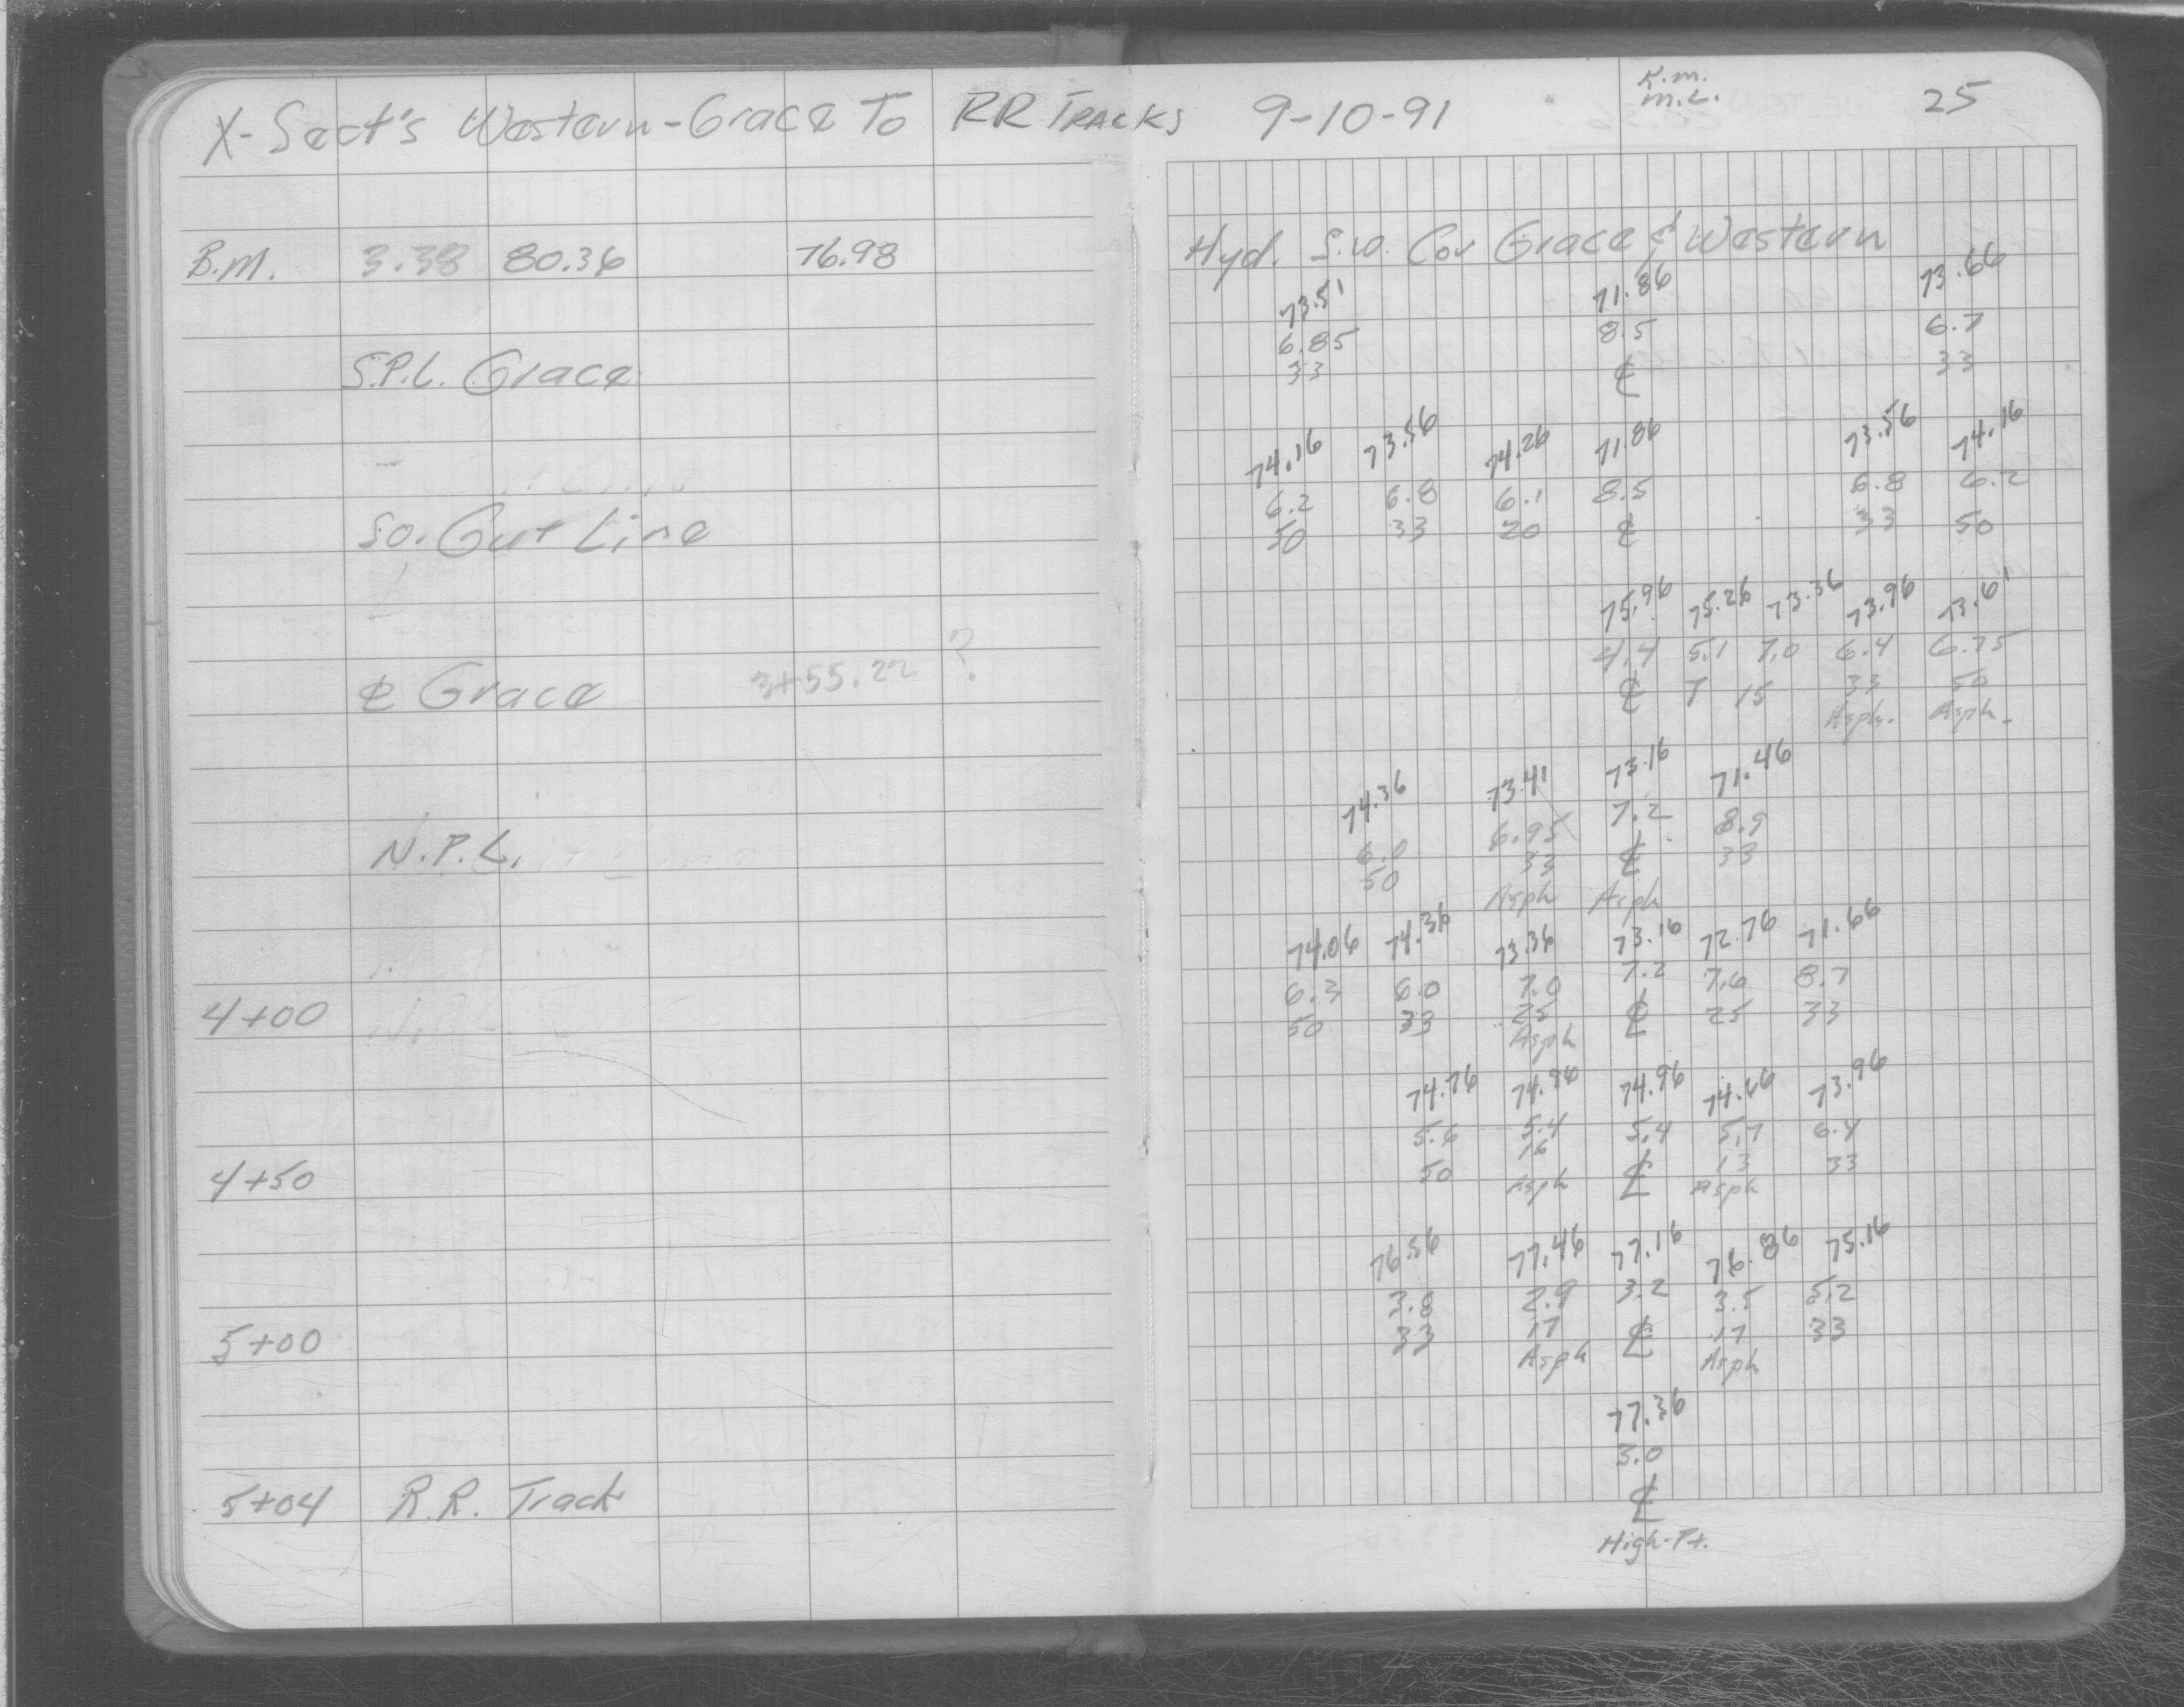 X-Sect's Western-Grace To RR TRACKS 9-10-91 K.m. 25
m.L.
B.M. 3.38 80.36 76.98 Hyd. S.W. Cor Grace & Western
73.51 71.86 73.66
6.85 8.5 6.7
S.P.L. Grace 33 ℄ 33
74.16 73.56 74.26 71.86 73.56 74.16
6.2 6.8 6.1 8.5 6.8 6.2
So. Gut Line 50 33 20 ℄ 33 50
75.96 75.26 73.36 73.96 73.61
4.4 5.1 7.0 6.4 6.75
℄ Grace 3+55.22 ? ℄ 7 15 33 50
Asph. Asph.
74.36 73.41 73.16 71.46
6.0 6.95 7.2 8.9
N.P.L. 50 33 ℄ 33
Asph Asph
74.06 74.36 73.36 73.16 72.76 71.66
6.3 6.0 7.0 7.2 7.6 8.7
4+00 50 33 25 ℄ 25 33
Asph
74.76 74.96 74.96 74.66 73.96
5.6 5.4 5.4 5.7 6.4
4+50 50 16 ℄ 13 33
Asph Asph
76.56 77.46 77.16 76.86 75.16
3.8 2.9 3.2 3.5 5.2
5+00 33 17 ℄ 17 33
Asph Asph
77.36
3.0
5+04 R.R. Track ℄
High-Pt.